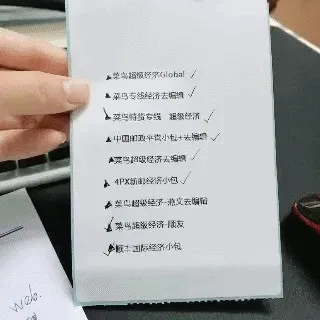 菜鸟超级经济Global
菜鸟专线经济去编辑
菜鸟特货专线-超级经济
中国邮政平常小包+去编辑
菜鸟超级经济去编辑
4PX新邮经济小包
菜鸟超级经济-燕文去编辑
菜鸟超级经济-顺友
顺丰国际经济小包
web.